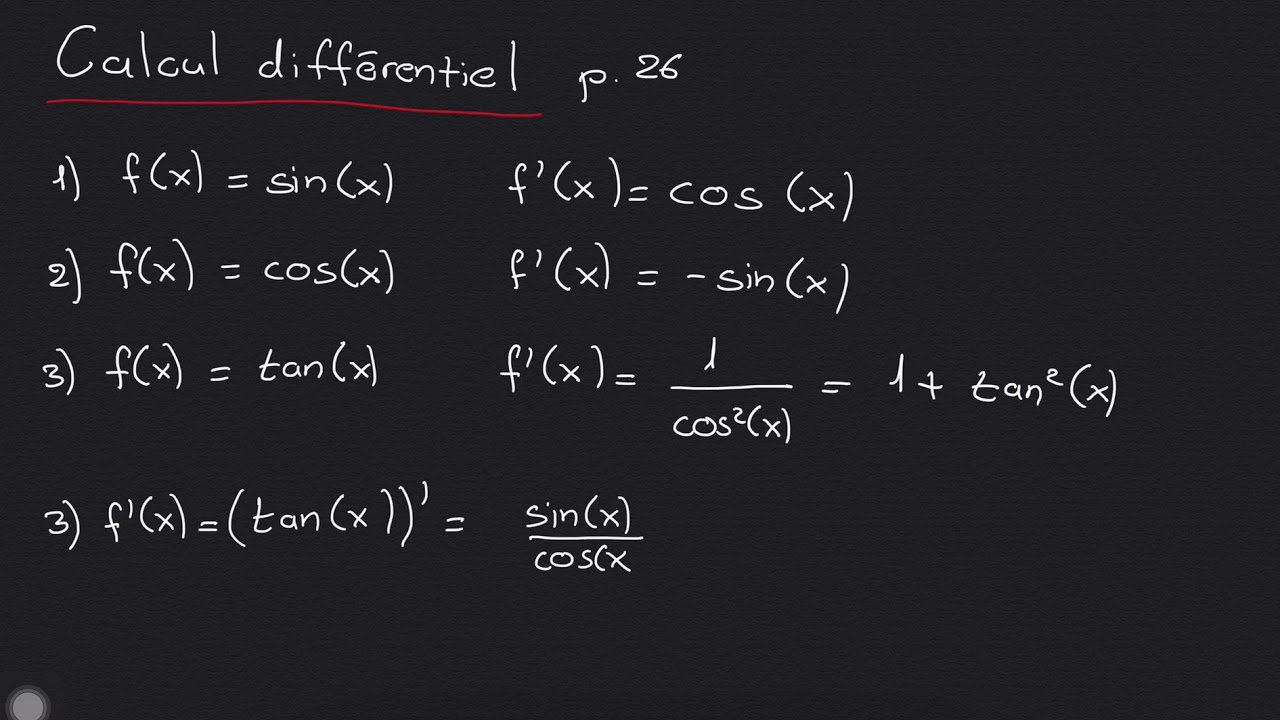 Calcul différentiel p. 26
1) f(x) = sin(x) f'(x) = cos (x)
2) f(x) = cos(x) f'(x) = -sin(x)
3) f(x) = tan(x) f'(x) = 1/cos²(x) = 1 + tan²(x)
3) f'(x) = (tan(x))' = sin(x)/cos(x